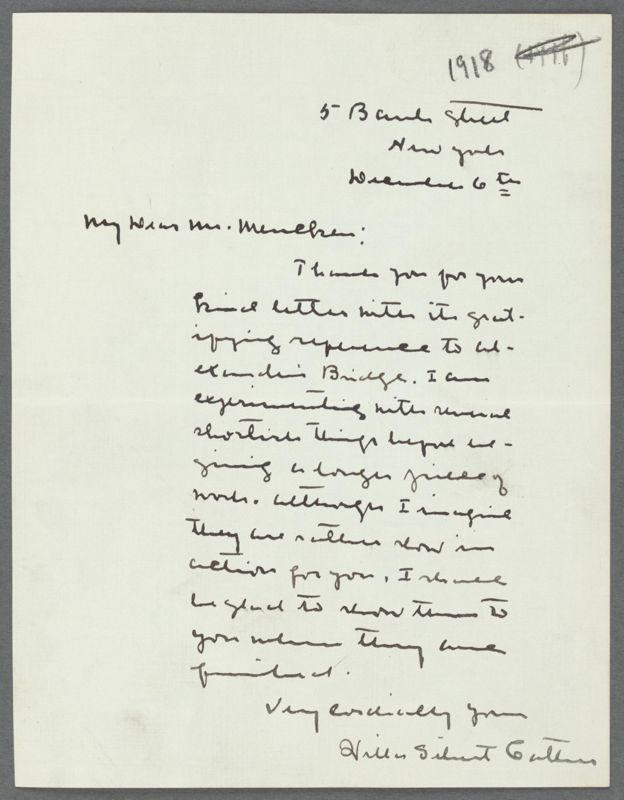 1918
5 Bank Street
New York
December 6th
My Dear Mr. Mencken:
Thank you for your
kind letter with its grat-
ifying reference to Al-
exander's Bridge. I am
experimenting with several
shortish things before be-
ginning a longer piece of
work. Although I imagine
they are rather slow in
action for you, I should
be glad to show them to
you when they are
finished.
Very cordially yours
Willa Sibert Cather